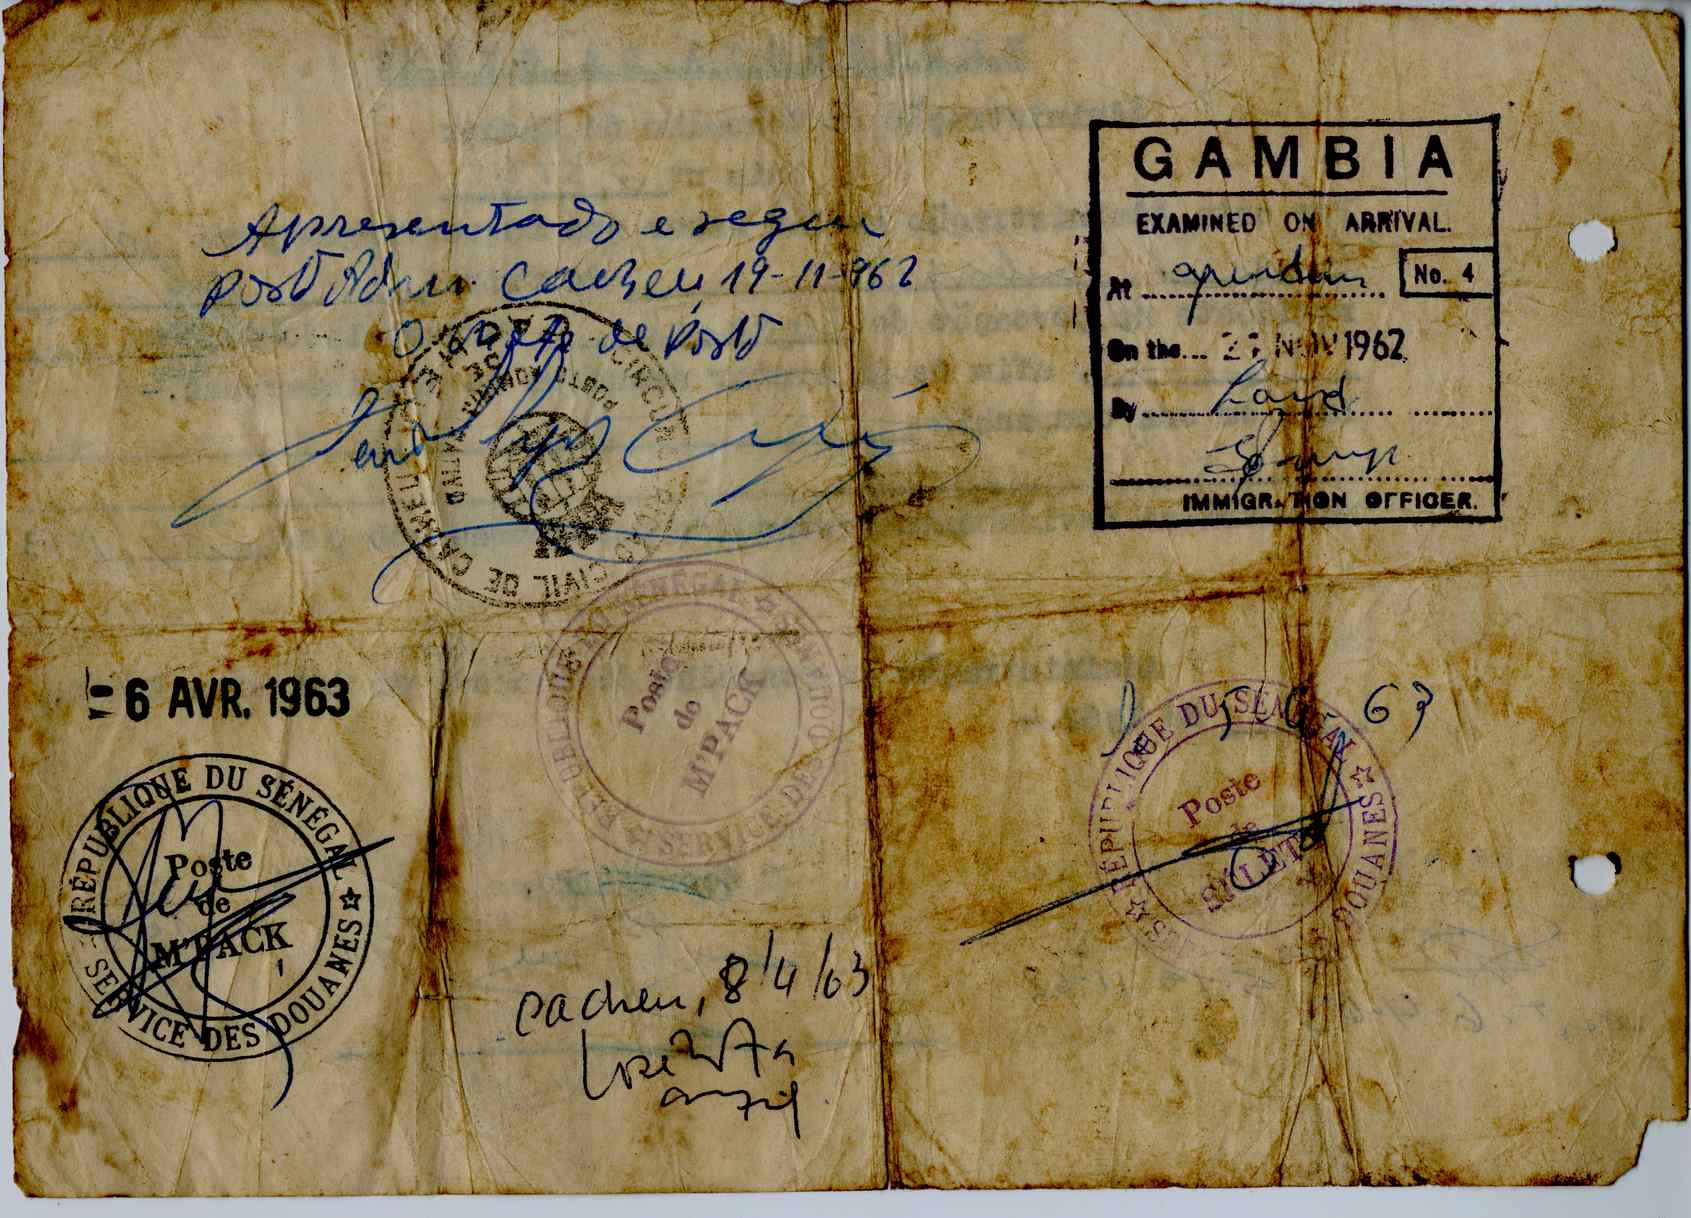 Apresentado e segue
Posto Admn. Cacheu, 19-11-962
O de Posto
CIVIL DE CACHEU
POSTO
GAMBIA
EXAMINED ON ARRIVAL.
At No. 4
On the... NOV 1962
By Land
IMMIGRATION OFFICER.
- 6 AVR. 1963
RÉPUBLIQUE DU SÉNÉGAL
Poste
de
M'PACK
SERVICE DES DOUANES
RÉPUBLIQUE DU SÉNÉGAL
Poste
de
M'PACK
SERVICE DES DOUANES
63
RÉPUBLIQUE DU SÉNÉGAL
Poste
de
DOUANES
Cacheu, 8/4/63
José